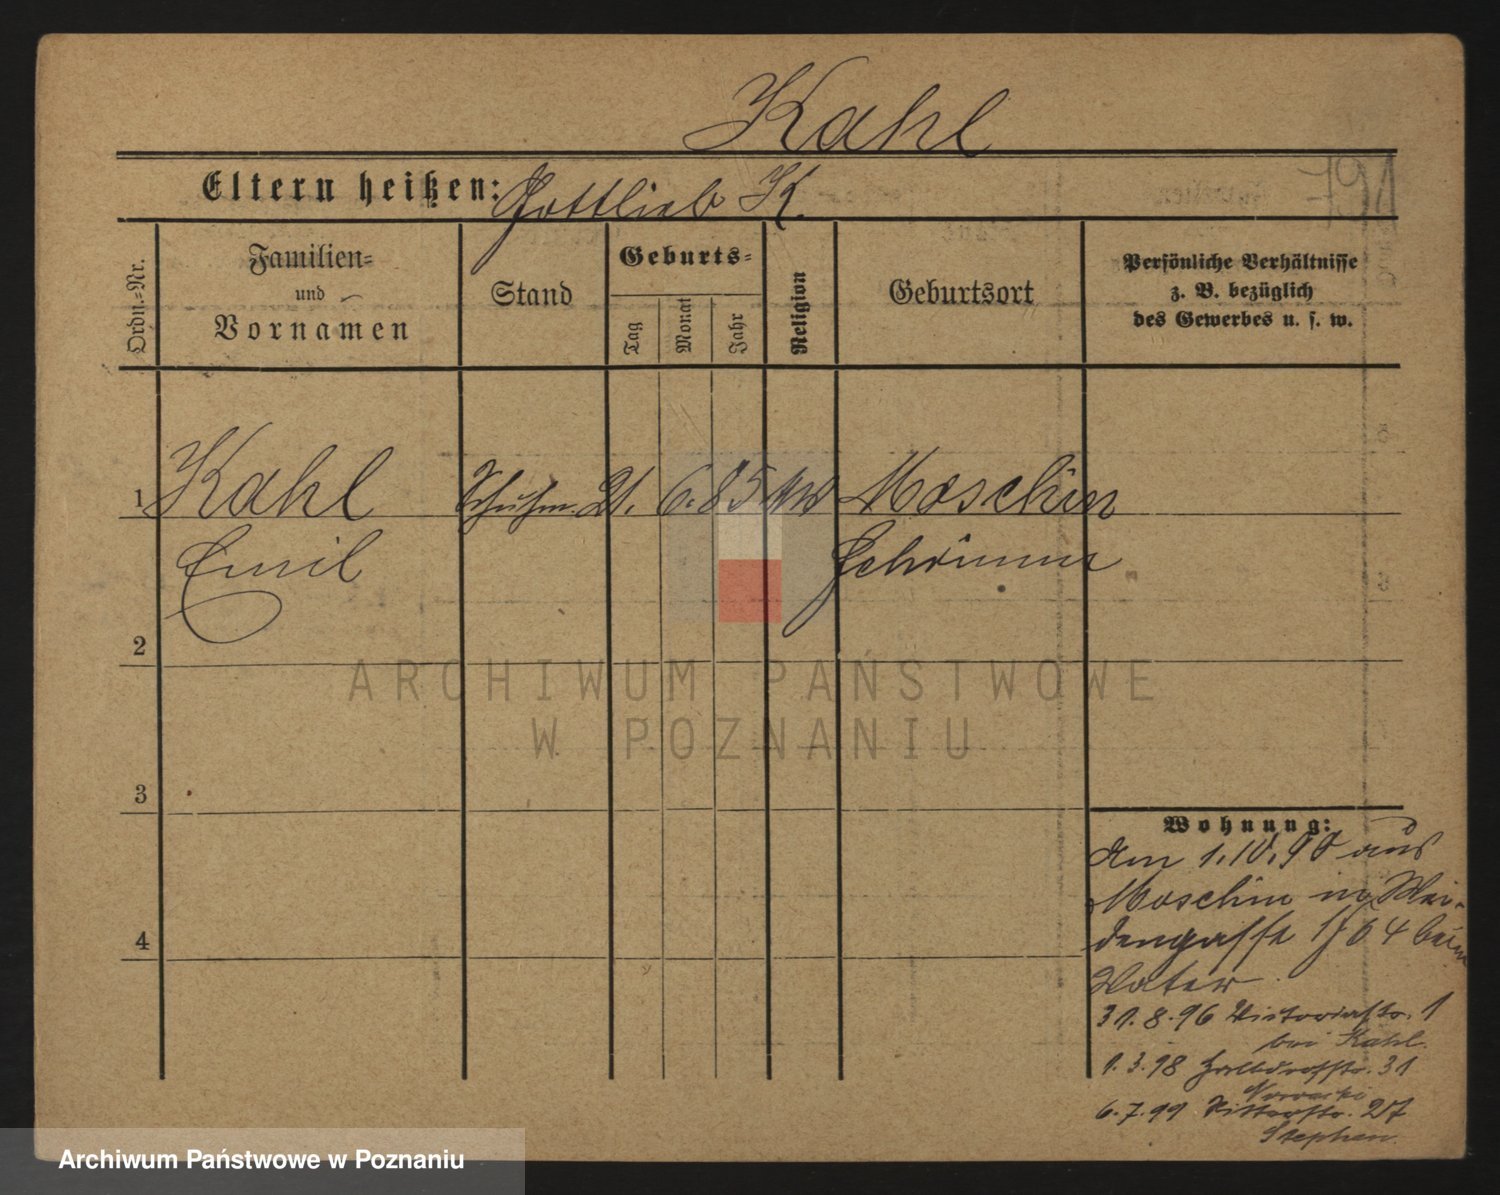 Kahl
Eltern heißen: Gottlieb K.
791
Ordn.-Nr.
Familien-
und
Vornamen
Stand
Geburts-
Tag
Monat
Jahr
Religion
Geburtsort
Persönliche Verhältnisse
z. B. bezüglich
des Gewerbes u. s. w.
1 Kahl Schuhm. 21. 6. 85 Moschin
Emil Schrimm
2
3
4
Wohnung:
Am 1.10.90 aus
Moschin in Wai-
dengasse 64 beim
Vater
31.8.96 Victoriastr. 1
bei Kahl.
1.3.98 Halbdorfstr. 31
Nowacki
6.7.99 Ritterstr. 27
Stephan
ARCHIWUM PAŃSTWOWE
W POZNANIU
Archiwum Państwowe w Poznaniu